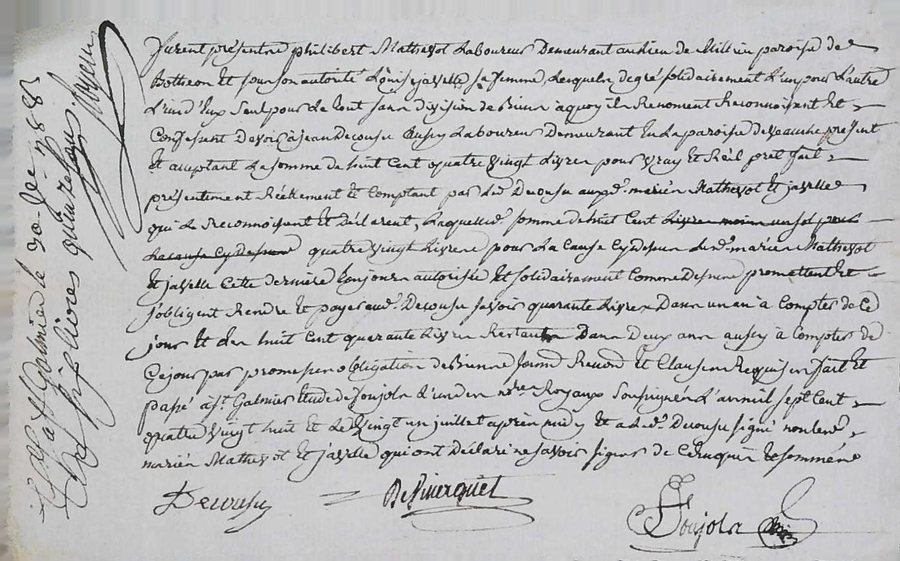 furent présentre philibert Mathevot Laboureur Demeurant au lieu de paroise de
Botheon Et sous son autorité Louise javelle sa femme, Lesquels de gré solidairement L'un pour L'autre
L'un d'Eux Seul pour Le tout sans Division de Biens a quoy ils Renoncent Reconnoissent Et
Confessent Devoir à jean Decousu aussy Laboureur Demeurant En La paroise de Veauche présent
Et acceptant La somme de huit Cent quatre vingt Livres pour vray et Réel pret fait
présentement Réellement Et Comptant par Led. Decousu auxd. mariés Mathevot Et javelle
qui Le Reconnoissent Et Déclarent, Laquelle somme de huit Cent Livres
quatre vingt Livres pour La Cause Cy Dessus Lesd. mariés Mathevot
Et javelle Cete derniere toujours autorisée Et solidairement Comme Dessus promettent Et
s'obligent Rendre Et payer aud. Decousu savoir quarante Livres Dans un an à Compter de Ce
jour Et Les huit Cent quarante Livres Restantes Dans Deux ans aussy à Compter de
Ce jour par promesses obligation de Biens Renond Et Clauses Requises fait Et
passé à St. Galmier Etude de Soujols L'un des nres Royaux Soussignés L'an mil sept Cent
quatre vingt huit Et Le vingt un juillet après midy Et a Led. Decousu signé non Lesd.
mariés Mathevot Et javelle qui ont Déclaré ne savoir signer de Ce Enquis Et sommés
Decousu
Soujols
à St Galmier le 30 1788
quinze sous